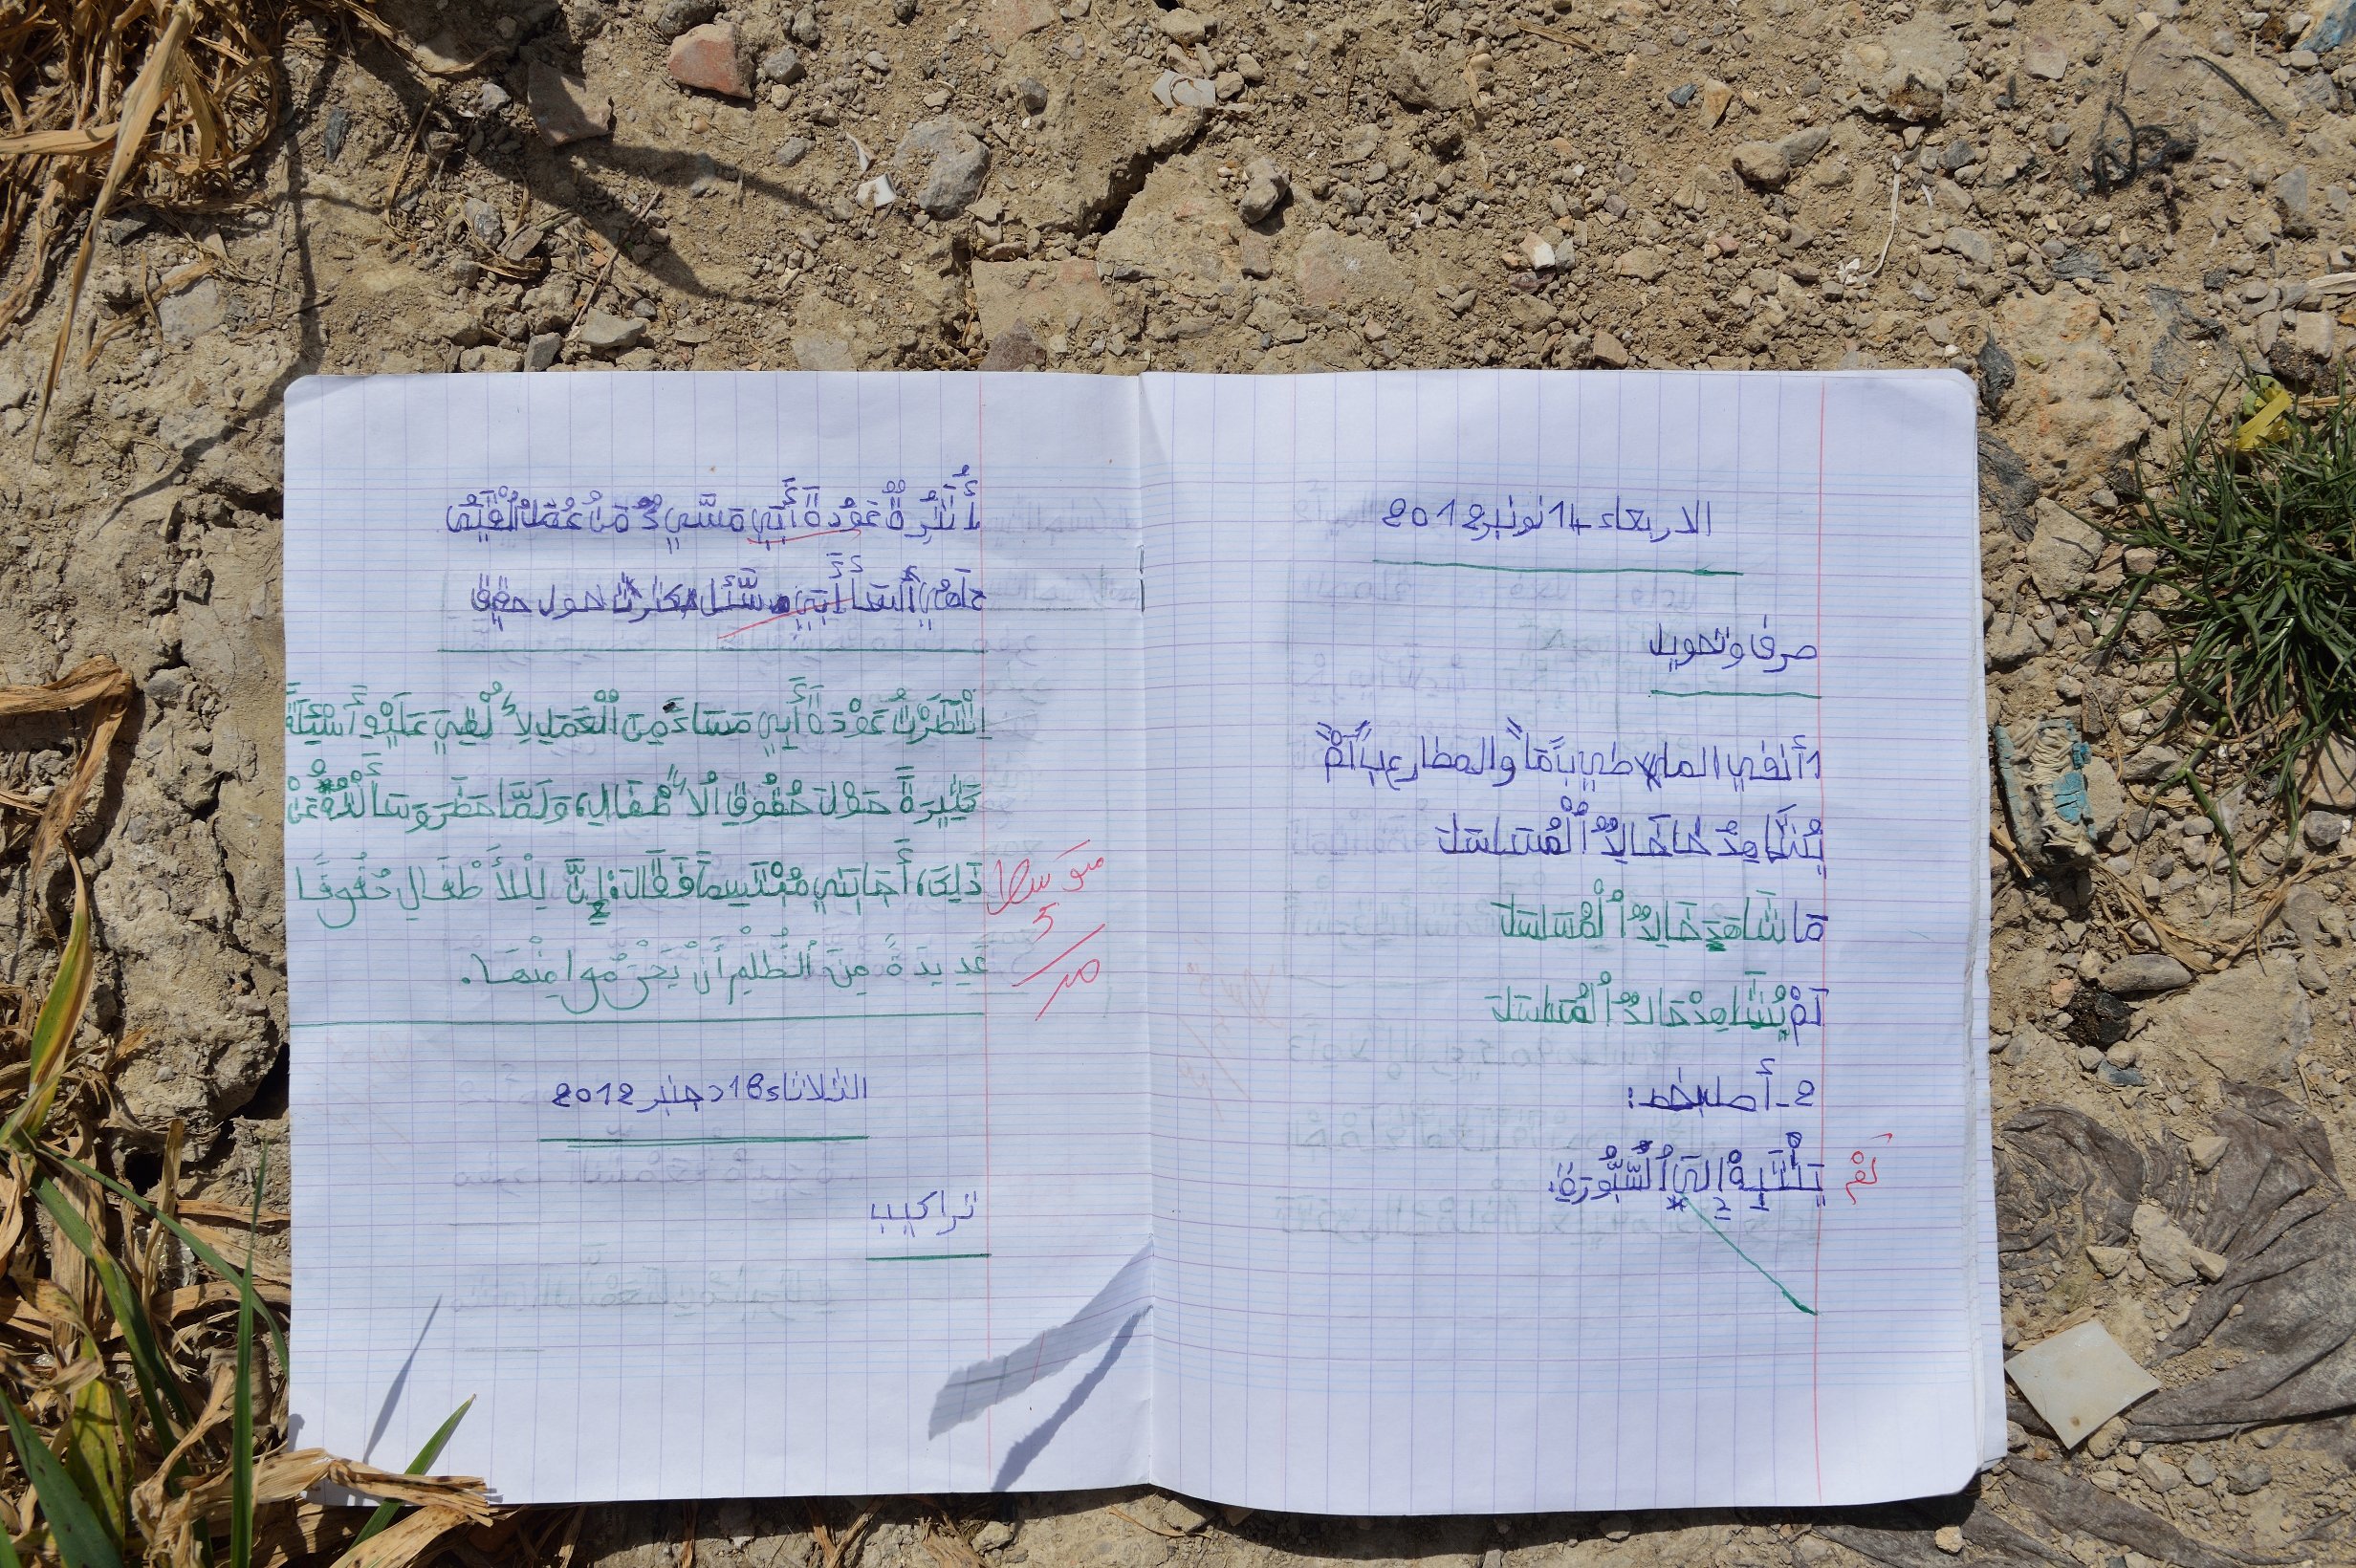 الاربعاء 14 نونبر 2012
صرف وتحويل
1 أنفي الماضي بمَا والمضارع بلَمْ
يُشَاهِدُ خَالِدٌ اُلْمُسَلسَلَ
مَا شَاهَدَ خَالِدٌ اُلْمُسَلسَلَ
لَمْ يُشَاهِدْ خَالِدٌ اُلْمُسَلسَلَ
2 - أصل بخط :
يَنْتَبِهْ إِلَى اُلسَّبُّورَةِ.
نعم
عَوْدَةَ أَبِي
حول حقوق
اِنْتَظَرْتُ عَوْدَةَ أَبِي مَسَاءً مِنَ اُلْعَمَلِ لِأُلْقِيَ عَلَيْهِ أَسْئِلَةً
كَثِيرَةً حَوْلَ حُقُوقِ اُلْأَطْفَالِ، وَلَمَّا حَضَرَ وَسَأَلْتُهُ عَنْ
ذَلِكَ، أَجَابَنِي مُبْتَسِماً فَقَالَ: إِنَّ لِلْأَطْفَالِ حُقُوقًا
عَدِيدَةً مِنَ اُلظُّلْمِ أَنْ يُحْرَمُوا مِنْهَا.
متوسط
5
الثلاثاء 18 دجنبر 2012
تراكيب